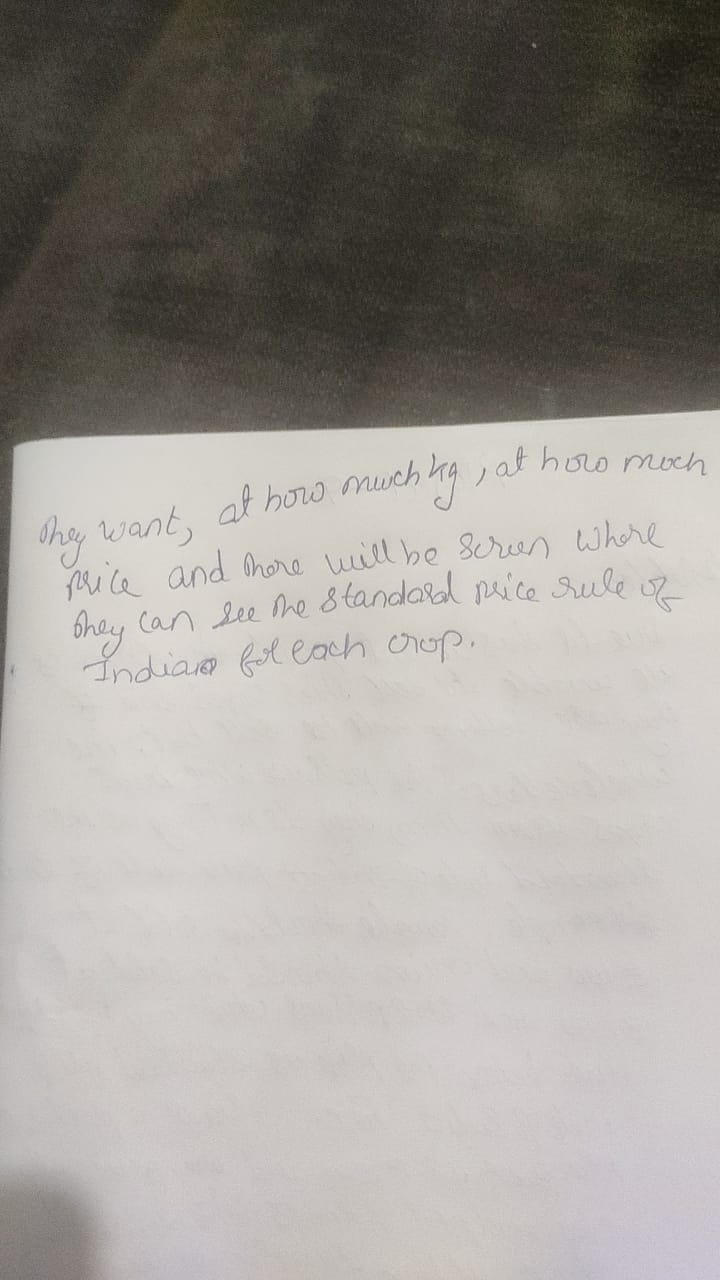 they want, at how much kg, at how much
price and there will be screen where
they can see the standard price rule of
Indian for each crop.